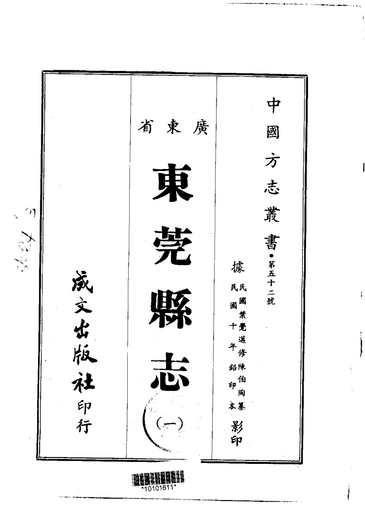 中國方志叢書·第五十二號
據民國葉覺邁修陳伯陶纂
民國十年鉛印本影印
廣東省
東莞縣志
(一)
成文出版社印行
*10101611*